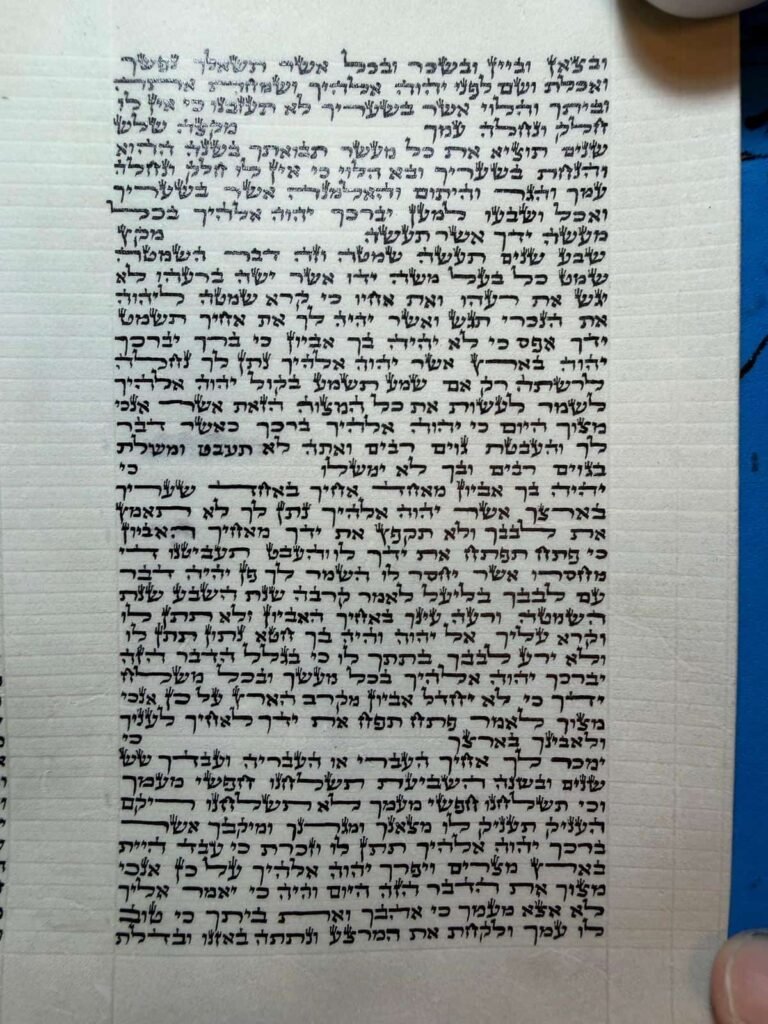 ובצאן וביין ובשכר ובכל אשר תשאלך נפשך
ואכלת שם לפני יהוה אלהיך ושמחת אתה
וביתך והלוי אשר בשעריך לא תעזבנו כי אין לו
חלק ונחלה עמך מקצה שלש
שנים תוציא את כל מעשר תבואתך בשנה ההוא
והנחת בשעריך ובא הלוי כי אין לו חלק ונחלה
עמך והגר והיתום והאלמנה אשר בשעריך
ואכלו ושבעו למען יברכך יהוה אלהיך בכל
מעשה ידך אשר תעשה מקץ
שבע שנים תעשה שמטה וזה דבר השמטה
שמט כל בעל משה ידו אשר ישה ברעהו לא
יגש את רעהו ואת אחיו כי קרא שמטה ליהוה
את הנכרי תגש ואשר יהיה לך את אחיך תשמט
ידך אפס כי לא יהיה בך אביון כי ברך יברכך
יהוה בארץ אשר יהוה אלהיך נתן לך נחלה
לרשתה רק אם שמע תשמע בקול יהוה אלהיך
לשמר לעשות את כל המצוה הזאת אשר אנכי
מצוך היום כי יהוה אלהיך ברכך כאשר דבר
לך והעבטת גוים רבים ואתה לא תעבט ומשלת
בגוים רבים ובך לא ימשלו כי
יהיה בך אביון מאחד אחיך באחד שעריך
בארצך אשר יהוה אלהיך נתן לך לא תאמץ
את לבבך ולא תקפץ את ידך מאחיך האביון
כי פתח תפתח את ידך לו והעבט תעביטנו די
מחסרו אשר יחסר לו השמר לך פן יהיה דבר
עם לבבך בליעל לאמר קרבה שנת השבע שנת
השמטה ורעה עינך באחיך האביון ולא תתן לו
וקרא עליך אל יהוה והיה בך חטא נתון תתן לו
ולא ירע לבבך בתתך לו כי בגלל הדבר הזה
יברכך יהוה אלהיך בכל מעשך ובכל משלח
ידך כי לא יחדל אביון מקרב הארץ על כן אנכי
מצוך לאמר פתח תפתח את ידך לאחיך לעניך
ולאבינך בארצך כי
ימכר לך אחיך העברי או העבריה ועבדך שש
שנים ובשנה השביעת תשלחנו חפשי מעמך
וכי תשלחנו חפשי מעמך לא תשלחנו ריקם
העניק תעניק לו מצאנך ומגרנך ומיקבך אשר
ברכך יהוה אלהיך תתן לו וזכרת כי עבד היית
בארץ מצרים ויפדך יהוה אלהיך על כן אנכי
מצוך את הדבר הזה היום והיה כי יאמר אליך
לא אצא מעמך כי אהבך ואת ביתך כי טוב
לו עמך ולקחת את המרצע ונתתה באזנו ובדלת